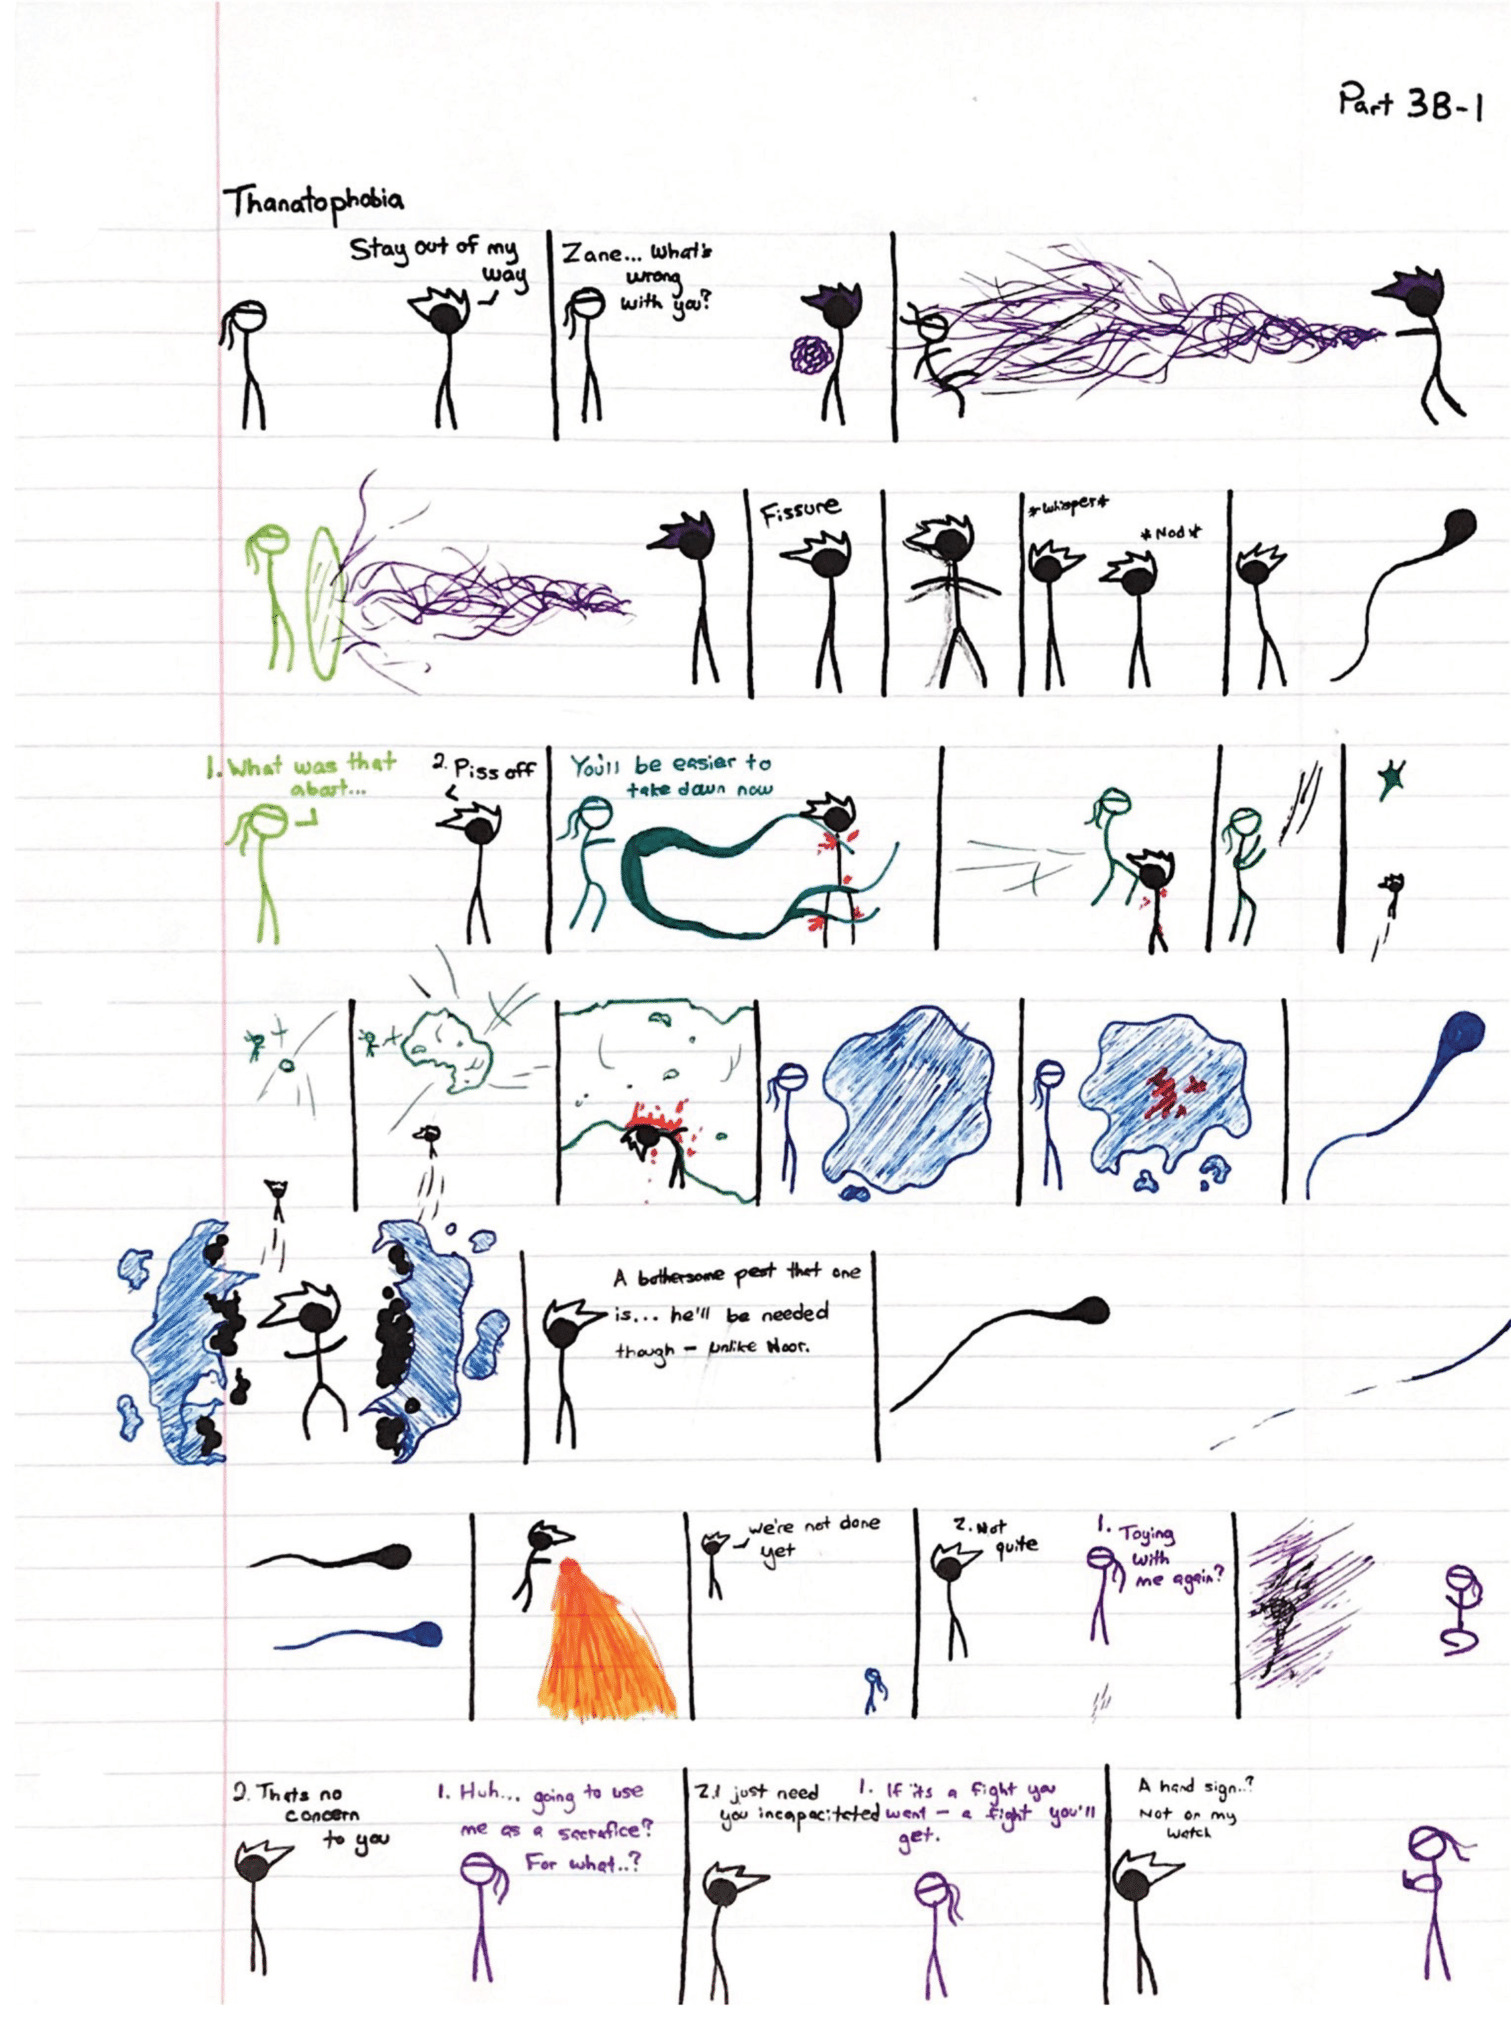 Part 3B-1
Thanatophobia
Stay out of my
way
Zane... What's
wrong
with you?
Fissure
*whisper*
*Nod*
1. What was that
about...
2. Piss off
You'll be easier to
take down now
A bothersome pest that one
is... he'll be needed
though - unlike Noor.
We're not done
yet
2. Not
quite
1. Toying
with
me again?
2. Thats no
concern
to you
1. Huh... going to use
me as a sacrafice?
For what..?
2. I just need
you incapacitated
1. If its a fight you
want - a fight you'll
get.
A hand sign..?
Not on my
watch